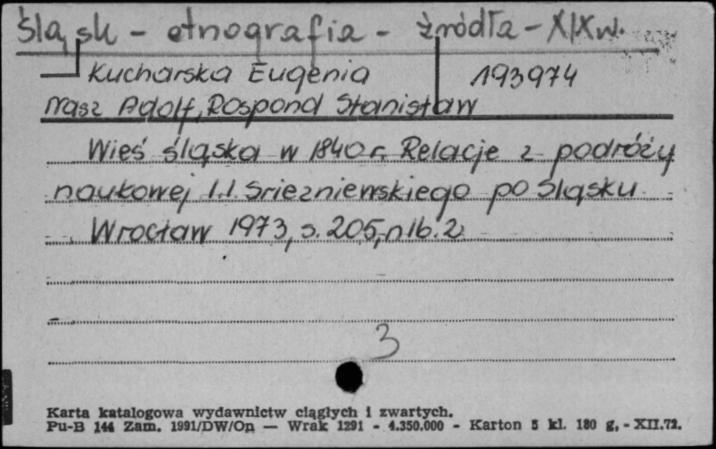 Śląsk - etnografia - źródła - XIX w.
Kucharska Eugenia 193974
Nasz Adolf, Rospond Stanisław
Wieś śląska w 1840 r. Relacje z podróży
naukowej I.I. Sriezniewskiego po Śląsku
Wrocław 1973, s. 205, nlb. 2
3
Karta katalogowa wydawnictw ciągłych i zwartych.
Pu-B 144 Zam. 1991/DW/On — Wrak 1291 - 4.350.000 - Karton 5 kl. 180 g, - XII.72.